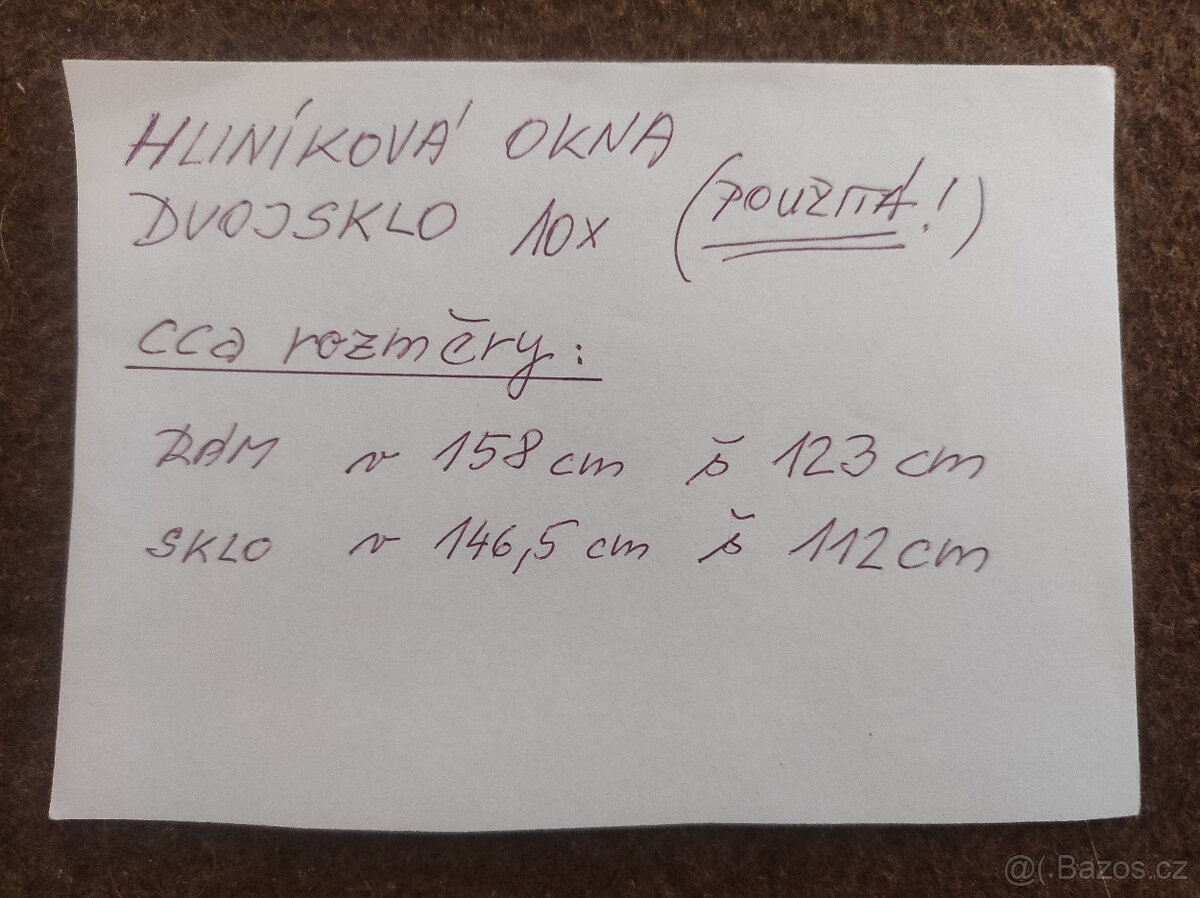 HLINÍKOVÁ OKNA
DVOJSKLO 10x (POUŽITÁ!)
cca rozměry:
RÁM v 158 cm š 123 cm
SKLO v 146,5 cm š 112 cm
@(. Bazos.cz